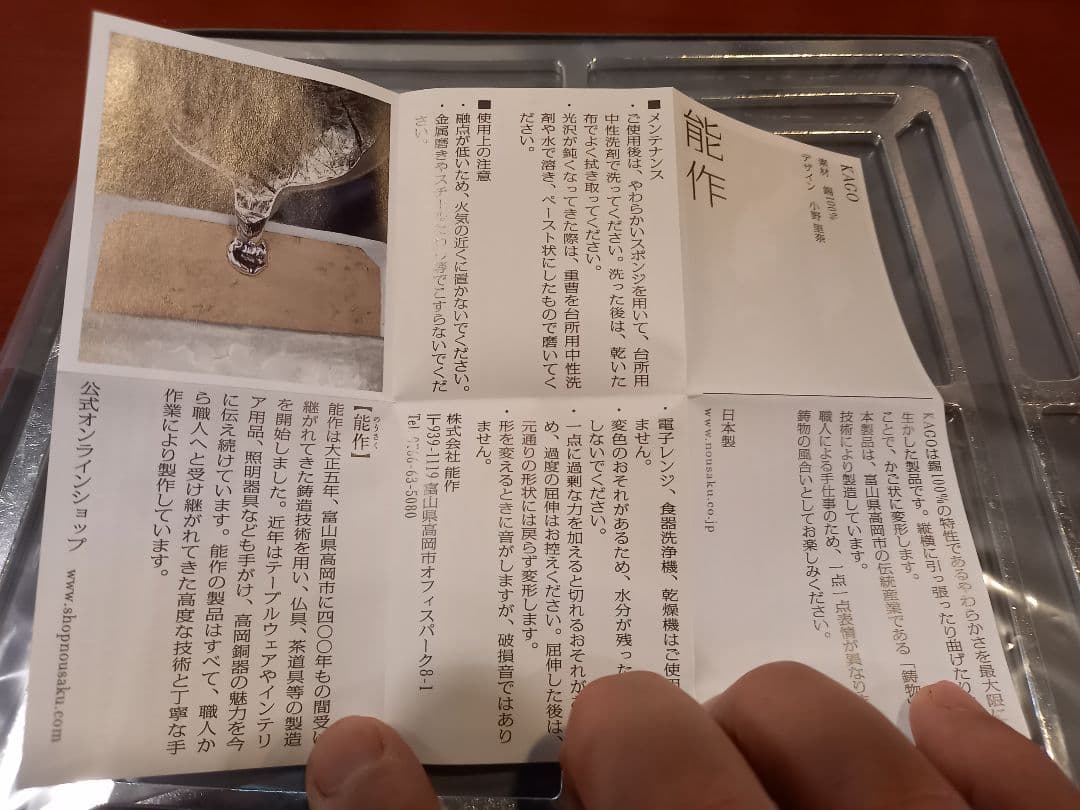 KAGO
素材　錫100%
デザイン　小野里奈
能作
■メンテナンス
・ご使用後は、やわらかいスポンジを用いて、台所用
中性洗剤で洗ってください。洗った後は、乾いた
布でよく拭き取ってください。
・光沢が鈍くなってきた際は、重曹を台所用中性洗
剤や水で溶き、ペースト状にしたもので磨いてく
ださい。
■使用上の注意
・融点が低いため、火気の近くに置かないでください。
・金属磨きやスチールたわし等でこすらないでくだ
さい。
KAGOは錫100%の特性であるやわらかさを最大限に
生かした製品です。縦横に引っ張ったり曲げたり
ことで、かご状に変形します。
本製品は、富山県高岡市の伝統産業である「鋳物
技術により製造しています。
職人による手仕事のため、一点一点表情が異なり
鋳物の風合いとしてお楽しみください。
日本製
www.nousaku.co.jp
・電子レンジ、食器洗浄機、乾燥機はご使用
ません。
・変色のおそれがあるため、水分が残った
しないでください。
・一点に過剰な力を加えると切れるおそれが
め、過度の屈伸はお控えください。屈伸した後は、
元通りの形状には戻らず変形します。
・形を変えるときに音がしますが、破損音ではあり
ません。
株式会社 能作
〒939-1119 富山県高岡市オフィスパーク8-1
Tel 0766-63-5080
【能作】
のうさく
能作は大正五年、富山県高岡市に四〇〇年もの間受け
継がれてきた鋳造技術を用い、仏具、茶道具等の製造
を開始しました。近年はテーブルウェアやインテリ
ア用品、照明器具なども手がけ、高岡銅器の魅力を今
に伝え続けています。能作の製品はすべて、職人か
ら職人へと受け継がれてきた高度な技術と丁寧な手
作業により製作しています。
公式オンラインショップ　www.shopnousaku.com